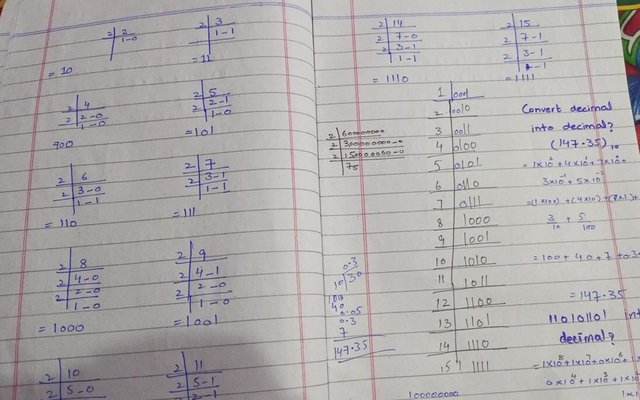 2 2
1-0
= 10
2 3
1-1
= 11
2 4
2 2-0
1-0
2 5
2 2-1
1-0
= 101
2 6
2 3-0
1-1
= 110
2 7
2 3-1
1-1
= 111
2 8
2 4-0
2 2-0
1-0
= 1000
2 9
2 4-1
2 2-0
1-0
= 1001
2 10
2 5-0
2 11
2 5-1
2-1
2 14
2 7-0
2 3-1
1-1
= 1110
2 15
2 7-1
2 3-1
1-1
= 1111
2 600000000
2 300000000-0
2 150000000-0
75
0.3
10 30
100
40
0.05
0.3
7
147.35
1 0001
2 0010
3 0011
4 0100
5 0101
6 0110
7 0111
8 1000
9 1001
10 1010
11 1011
12 1100
13 1101
14 1110
15 1111
100000000
Convert decimal
into decimal?
(147.35)10
= 1x10² + 4x10¹ + 7x10⁰ +
3x10⁻¹ + 5x10⁻²
=(1x100) + (4x10) + (7x1)+
3/10 + 5/100
=100 + 40 + 7 + 0.3+
= 147.35
110101101 int
decimal?
=1x10⁸ + 1x10⁷ + 0x10⁶ + 1x
0x10⁴ + 1x10³ + 1x10²